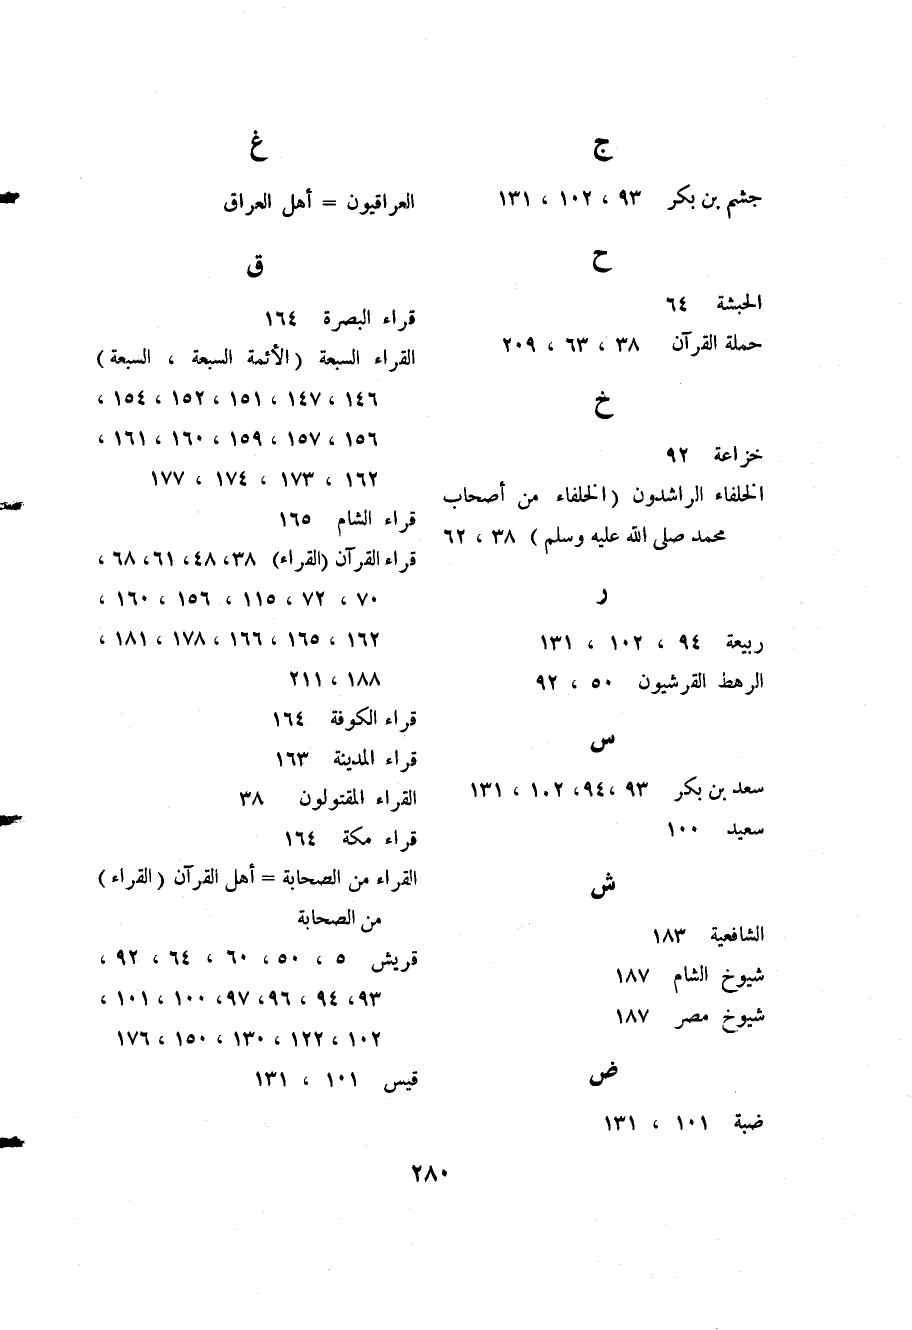 ج
جشم بن بكر ٩٣ ، ١٠٢ ، ١٣١
ح
الحبشة ٦٤
حملة القرآن ٣٨ ، ٦٣ ، ٢٠٩
خ
خزاعة ٩٢
الخلفاء الراشدون (الخلفاء من أصحاب
محمد صلى الله عليه وسلم) ٣٨ ، ٦٢
ر
ربيعة ٩٤ ، ١٠٢ ، ١٣١
الرهط القرشيون ٥٠ ، ٩٢
س
سعد بن بكر ٩٣ ،٩٤، ١٠٢ ، ١٣١
سعيد ١٠٠
ش
الشافعية ١٨٣
شيوخ الشام ١٨٧
شيوخ مصر ١٨٧
ض
ضبة ١٠١ ، ١٣١
غ
العراقيون = أهل العراق
ق
قراء البصرة ١٦٤
القراء السبعة (الأئمة السبعة ، السبعة)
١٤٦ ، ١٤٧ ، ١٥١ ، ١٥٢ ، ١٥٤ ،
١٥٦ ، ١٥٧ ، ١٥٩ ، ١٦٠ ، ١٦١ ،
١٦٢ ، ١٧٣ ، ١٧٤ ، ١٧٧
قراء الشام ١٦٥
قراء القرآن (القراء) ٣٨، ٤٨، ٦١، ٦٨ ،
٧٠ ، ٧٢ ، ١١٥ ، ١٥٦ ، ١٦٠ ،
١٦٢ ، ١٦٥ ، ١٦٦ ، ١٧٨ ، ١٨١ ،
١٨٨ ، ٢١١
قراء الكوفة ١٦٤
قراء المدينة ١٦٣
القراء المقتولون ٣٨
قراء مكة ١٦٤
القراء من الصحابة = أهل القرآن (القراء)
من الصحابة
قريش ٥ ، ٥٠ ، ٦٠ ، ٦٤ ، ٩٢ ،
٩٣، ٩٤ ، ٩٦ ،٩٧، ١٠٠ ، ١٠١ ،
١٠٢ ، ١٢٢ ، ١٣٠ ، ١٥٠ ، ١٧٦
قيس ١٠١ ، ١٣١
٢٨٠